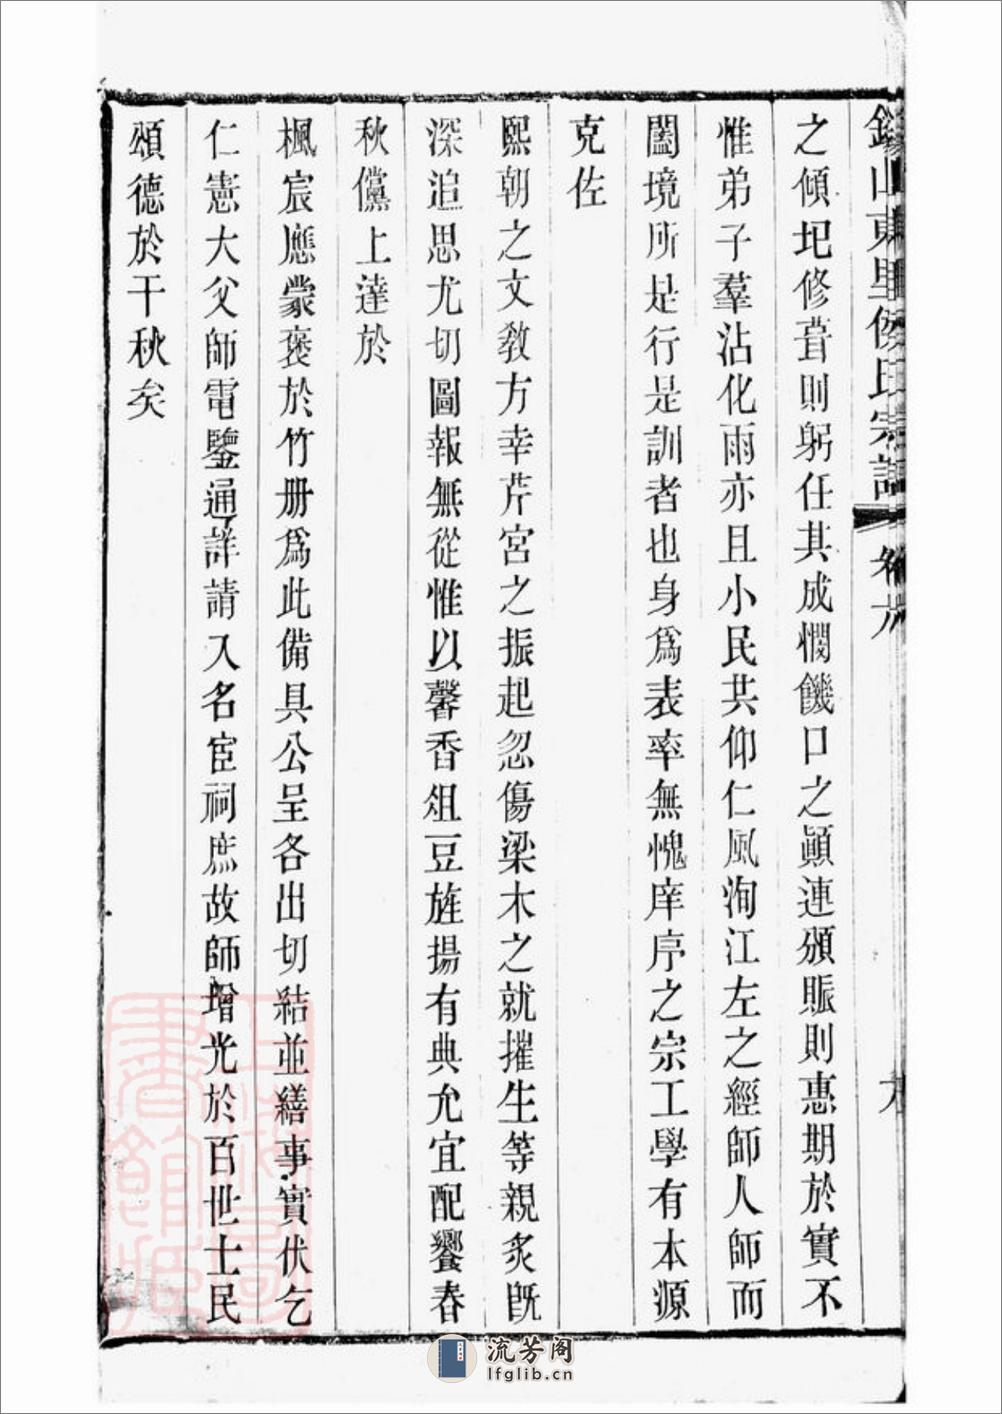 錫山東里侯氏宗譜 卷六
之傾圯修葺則躬任其成憫饑口之顚連頒賑則惠期於實不
惟弟子羣沾化雨亦且小民共仰仁風洵江左之經師人師而
闔境所是行是訓者也身爲表率無愧庠序之宗工學有本源
克佐
熙朝之文敎方幸芹宮之振起忽傷梁木之就摧生等親炙旣
深追思尤切圖報無從惟以馨香俎豆旌揚有典允宜配饗春
秋儻上達於
楓宸應蒙褒於竹册爲此備具公呈各出切結並繕事實伏乞
仁憲大父師電鑒通詳請入名宦祠庶故師增光於百世士民
頌德於千秋矣
流芳阁
lfglib.cn